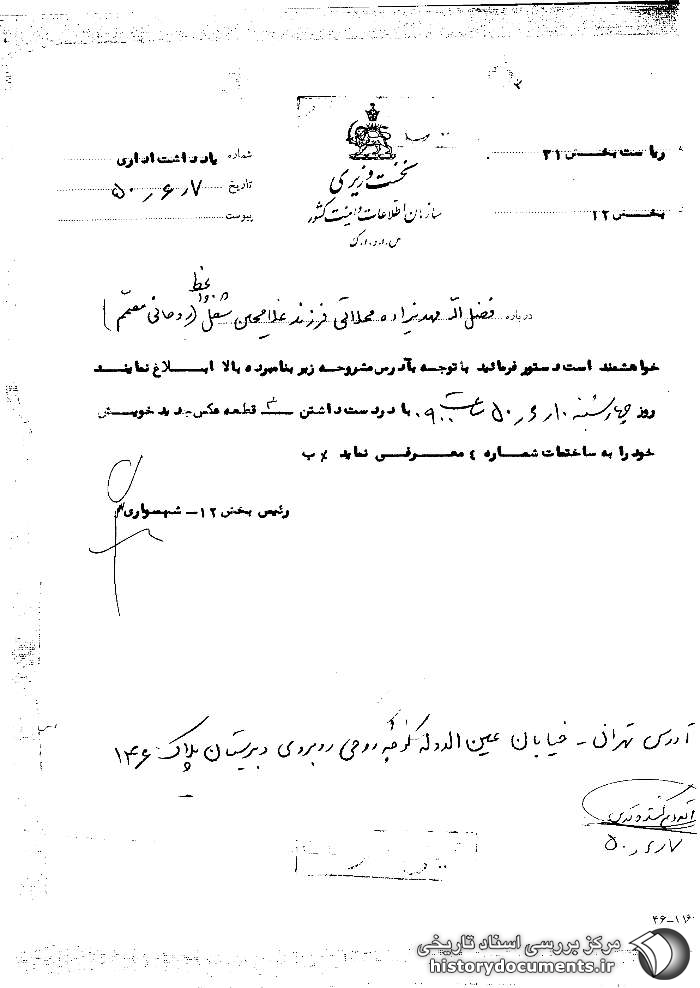 ریاست بخش ۳۱
بخش ۱۲
نخست وزیری
سازمان اطلاعات و امنیت کشور
س.ا.و.ا.ک
شماره یادداشت اداری
تاریخ ۵۰٫۶٫۷
پیوست
درباره فضل اله مهدیزاده محلاتی فرزند غلامحسین شغل (روحانی معمم)
خواهشمند است دستور فرمائید با توجه بآدرس مشروحه زیر بنامبرده بالا ابلاغ نمایند
روز چهارشنبه ۵۰٫۶٫۱۰ ساعت ۰۹۰۰ با در دست داشتن ۳ قطعه عکس جدید خویش
خود را به ساختمان شماره ٤ معرفی نماید
رئیس بخش ۱۲ - شهسواری
آدرس تهران - خیابان عین الدوله کوچه روحی روبروی دبیرستان پلاک ۱۴۶
۵۰٫۶٫۷
۴۶-۱۱۶
مرکز بررسی اسناد تاریخی
historydocuments.ir